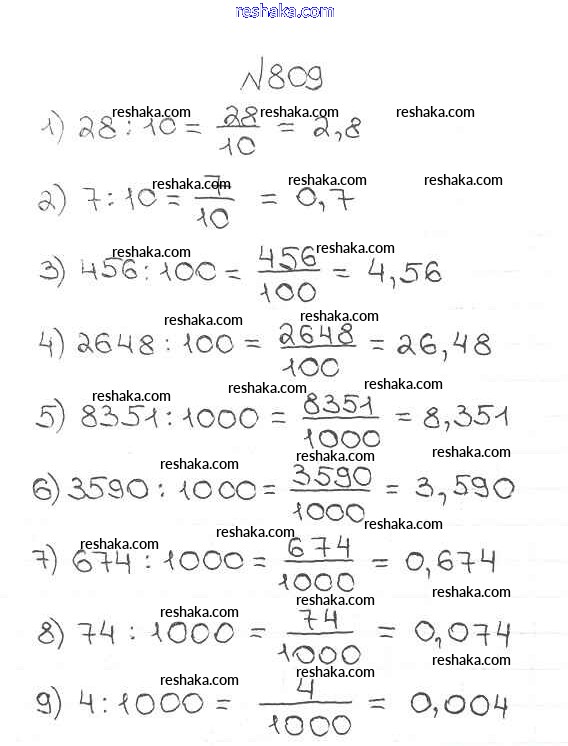 reshaka.com
№809
reshaka.com reshaka.com reshaka.com
1) 28 : 10 = 28/10 = 2,8
reshaka.com reshaka.com reshaka.com
2) 7 : 10 = 7/10 = 0,7
reshaka.com reshaka.com
3) 456 : 100 = 456/100 = 4,56
reshaka.com reshaka.com
4) 2648 : 100 = 2648/100 = 26,48
reshaka.com reshaka.com reshaka.com
5) 8351 : 1000 = 8351/1000 = 8,351
reshaka.com reshaka.com reshaka.com
6) 3590 : 1000 = 3590/1000 = 3,590
reshaka.com reshaka.com reshaka.com
7) 674 : 1000 = 674/1000 = 0,674
reshaka.com reshaka.com reshaka.com
8) 74 : 1000 = 74/1000 = 0,074
reshaka.com reshaka.com reshaka.com
9) 4 : 1000 = 4/1000 = 0,004